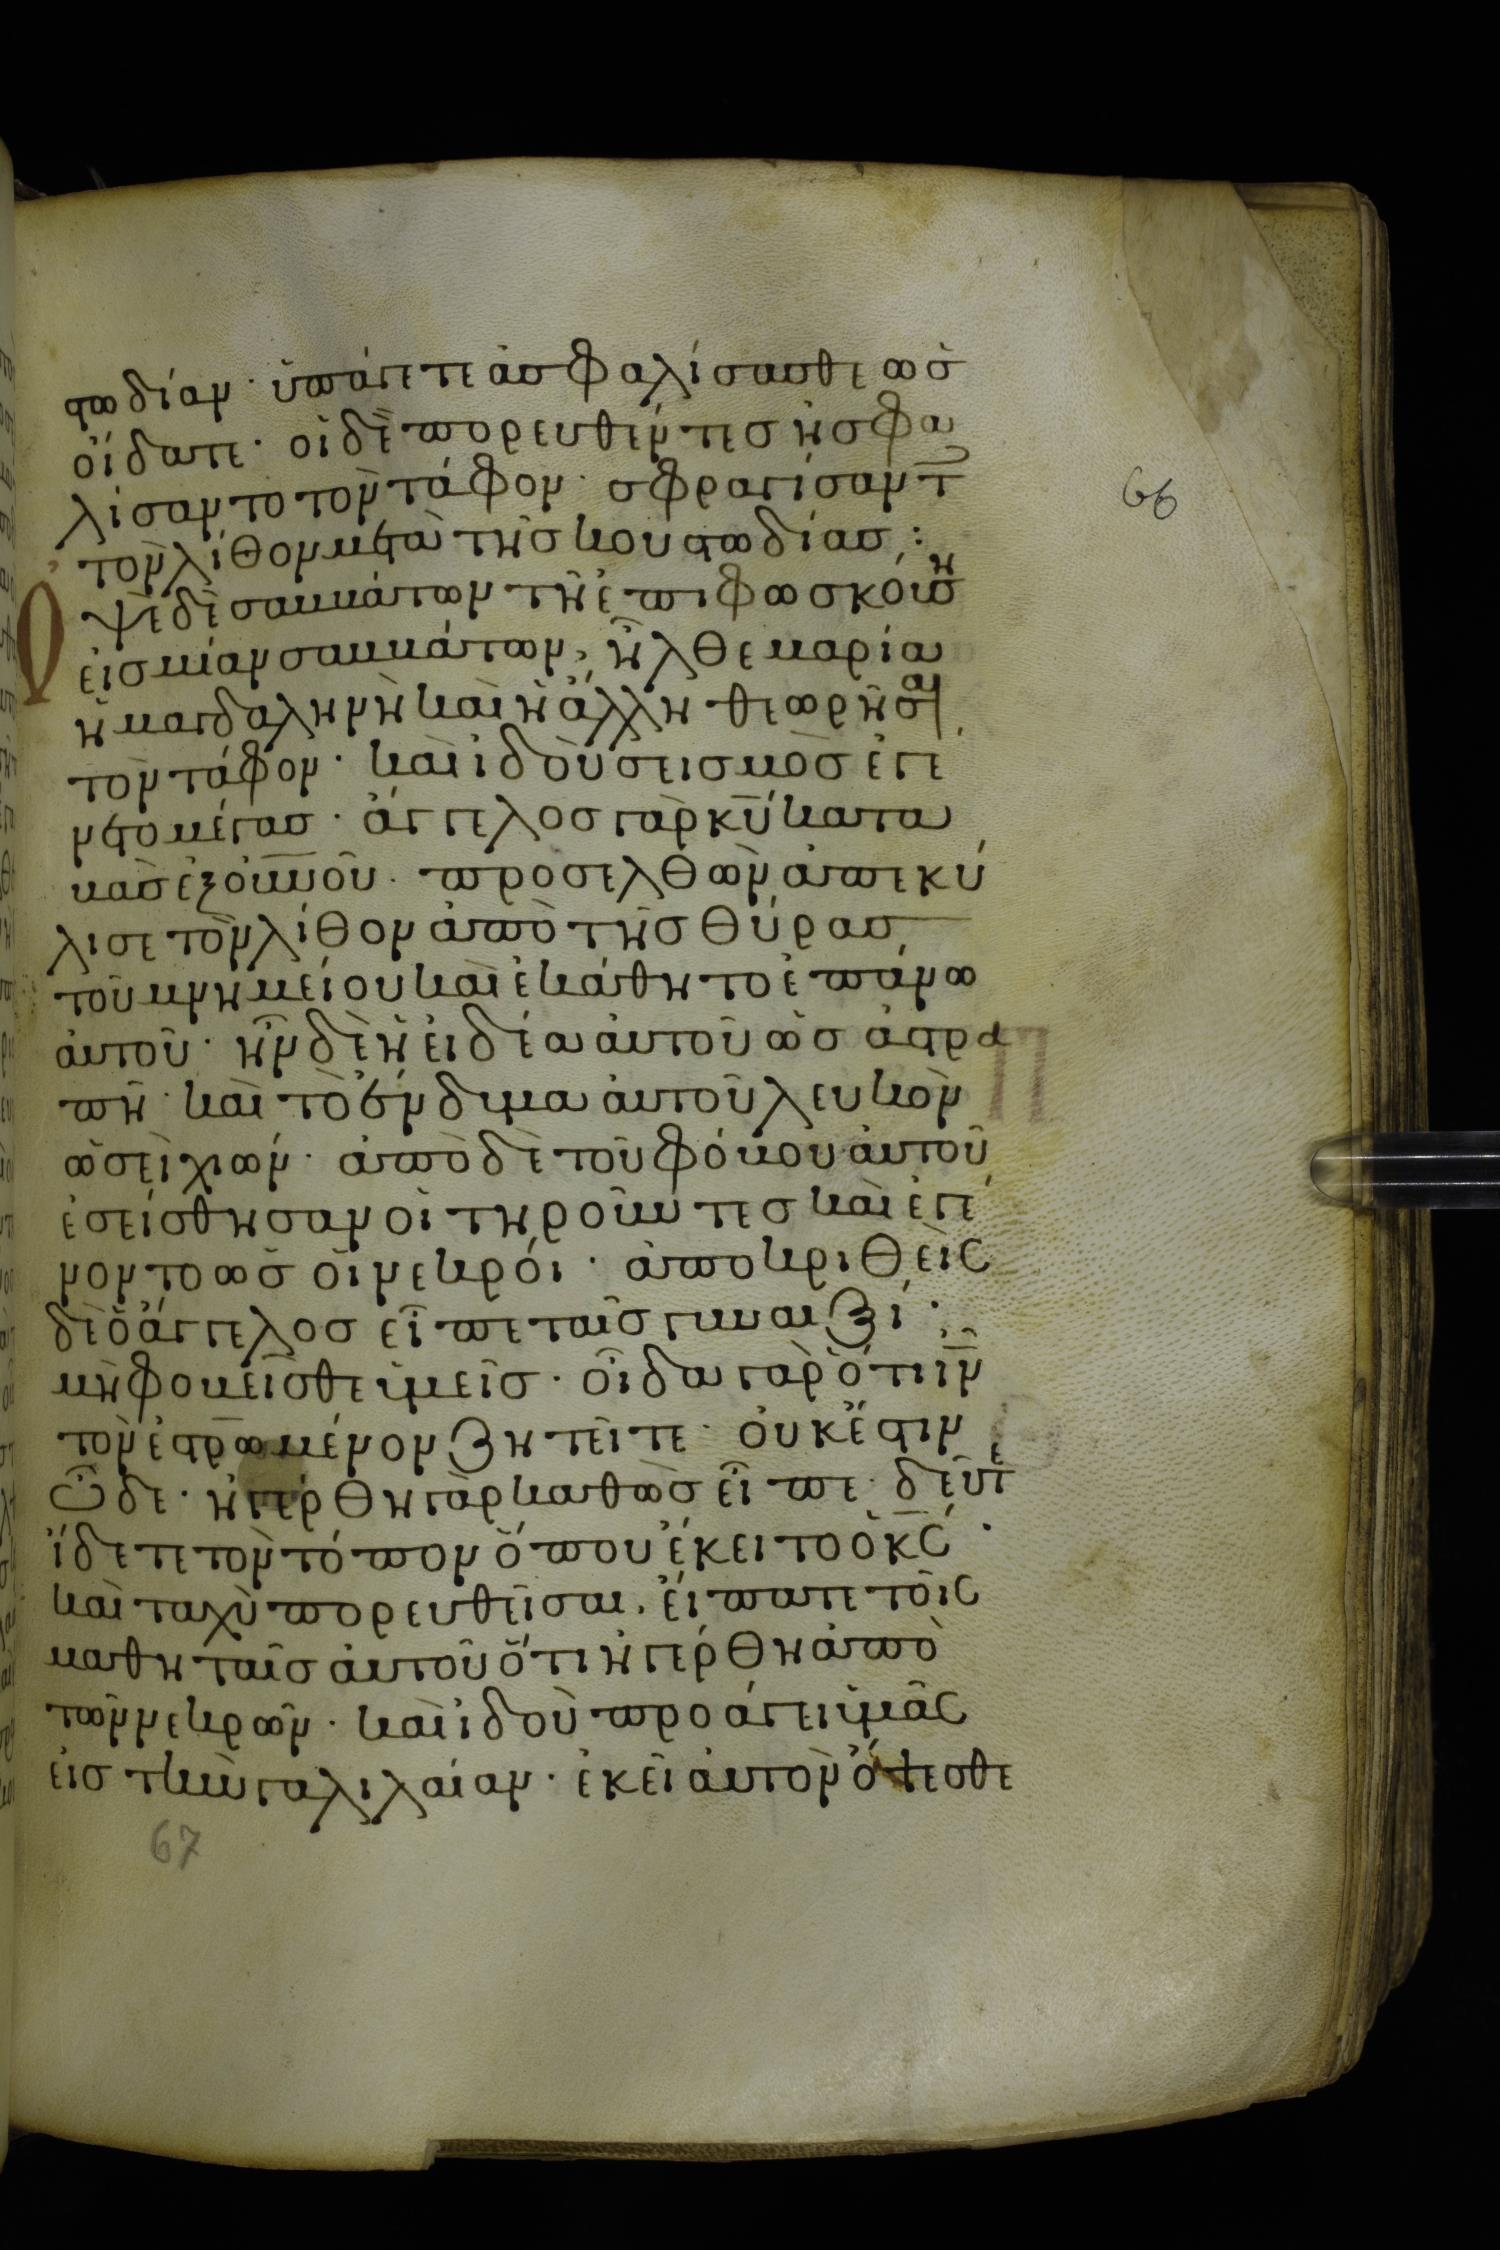 στωδίαν· ὑπάγετε ἀσφαλίσασθε ὡς
οἴδατε· οἱ δὲ πορευθέντες ἠσφα
λίσαντο τὸν τάφον· σφραγίσαντ
τὸν λίθον μετὰ τῆς κουστωδίας:
Ὀψὲ δὲ σαββάτων τῇ ἐπιφωσκούσῃ
εἰς μίαν σαββάτων, ἦλθε μαρία
ἡ μαγδαληνὴ καὶ ἡ ἄλλη θεωρῆσαι
τὸν τάφον· καὶ ἰδοὺ σεισμὸς ἐγέ
νετο μέγας· ἄγγελος γὰρ κυ κατα
βὰς ἐξ οὐνοῦ· προσελθὼν ἀπεκύ
λισε τὸν λίθον ἀπὸ τῆς θύρας
τοῦ μνημείου καὶ ἐκάθητο ἐπάνω
αὐτοῦ· ἦν δὲ ἡ εἰδέα αὐτοῦ ὡς ἀστρα
πὴ· καὶ τὸ ἔνδυμα αὐτοῦ λευκὸν
ὡσεὶ χιών· ἀπὸ δὲ τοῦ φόβου αὐτοῦ
ἐσείσθησαν οἱ τηροῦντες καὶ ἐγέ
νοντο ὡς οἱ νεκρόι· ἀποκριθεὶς
δὲ ὁ ἄγγελος εἶπε ταῖς γυναιξί·
μὴ φοβεῖσθε ὑμεῖς· οἶδα γὰρ ὅτι ιν
τὸν ἐστρωμένον ζητεῖτε· οὐκ ἔστιν
ὧδε· ἠγέρθη γὰρ καθὼς εἶπε· δεῦτε
ἴδετε τὸν τόπον ὅπου ἔκειτο ὁ κς·
καὶ ταχὺ πορευθεῖσαι, εἴπατε τοῖς
μαθηταῖς αὐτοῦ ὅτι ἠγέρθη ἀπὸ
τῶν νεκρῶν· καὶ ἰδοὺ προάγει ὑμᾶς
εἰς τὴν γαλιλαίαν· ἐκεῖ αὐτὸν ὄψεσθε
66
67